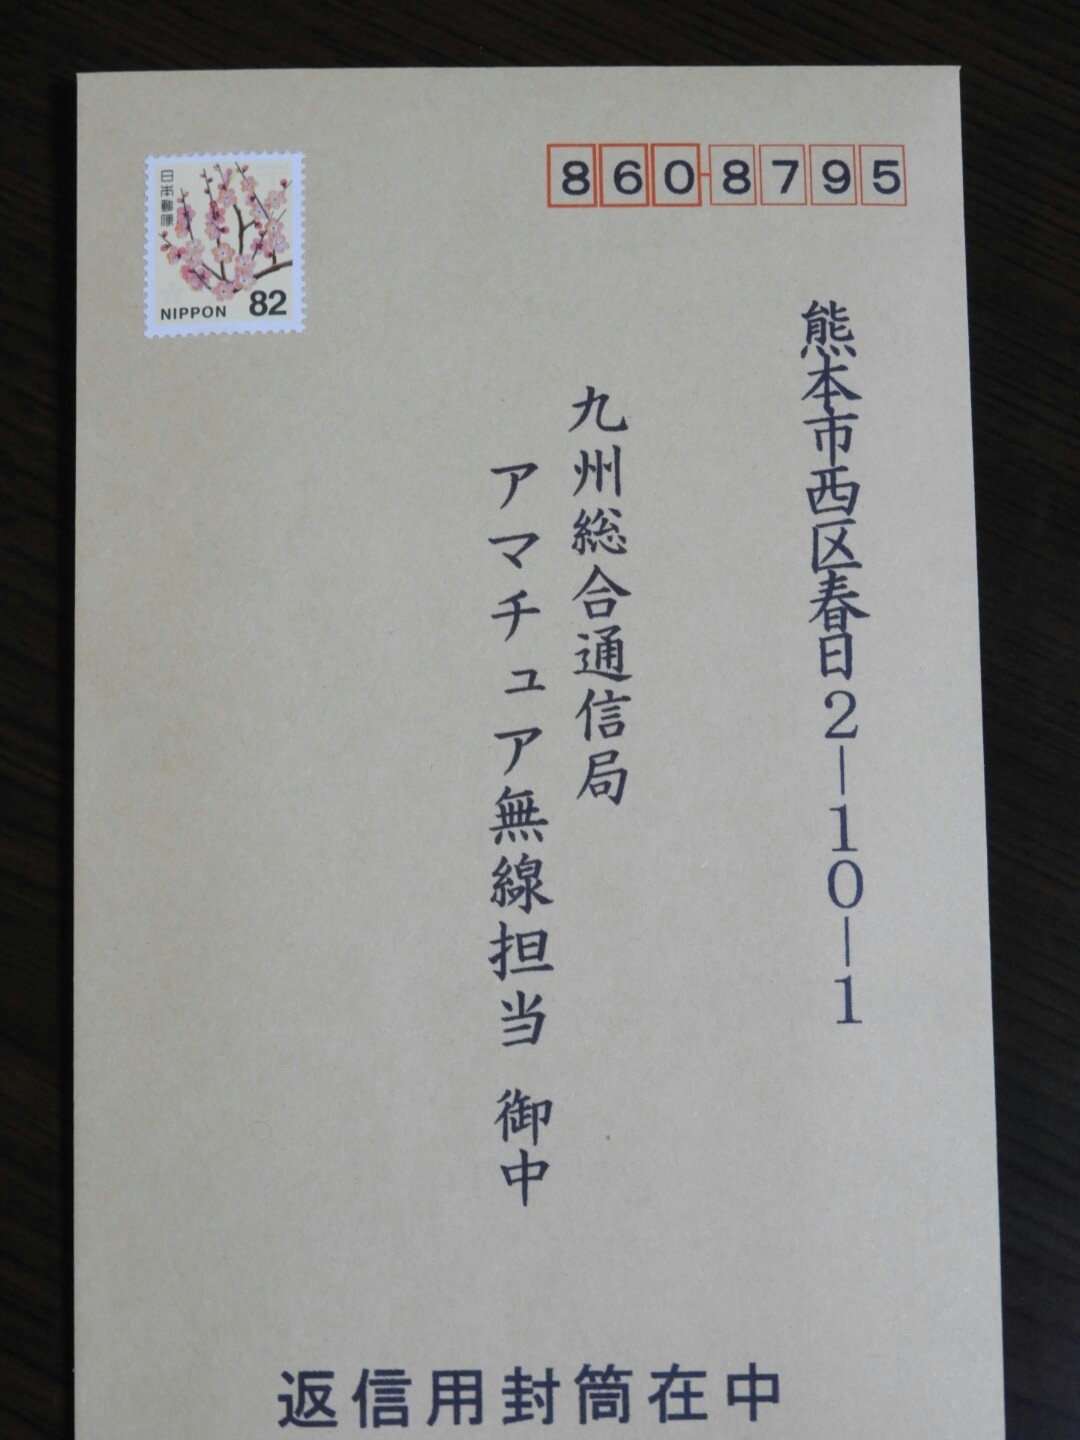 日本郵便
NIPPON 82
860-8795
熊本市西区春日2-10-1
九州総合通信局
アマチュア無線担当 御中
返信用封筒在中